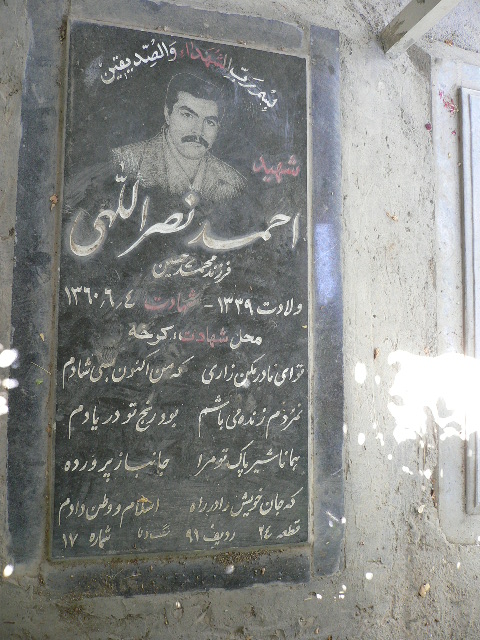 بسم رب الشهداء والصدیقین
شهید
احمد نصراللهی
فرزند محمدحسین
ولادت ۱۳۳۹ - شهادت ۴ر۶ر۱۳۶۰
محل شهادت: کرخه
توای مادر مکن زاری که من اکنون بسی شادم
نمردم زنده می باشم بود رنج تو در یادم
همانا شیر پاک تو مرا جانباز پرورده
که جان خویش را در راه اسلام و وطن دادم
قطعه ۲۴ ردیف ۹۱ شماره ۱۷